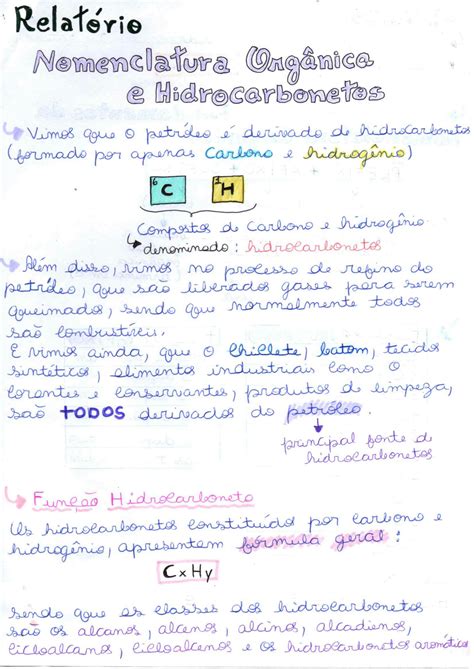 Relatório
Nomenclatura Orgânica
e Hidrocarbonetos
Vimos que o petróleo é derivado de hidrocarbonetos
(formado por apenas Carbono e hidrogênio)
6 C 1 H
Compostos de Carbono e hidrogênio
denominado: hidrocarbonetos
Além disso, vimos no processo de refino do
petróleo, que são liberados gases para serem
queimados, sendo que normalmente todos
são combustíveis.
E vimos ainda, que o chiclete, batom, tecidos
sintéticos, alimentos industriais como o
corantes e conservantes, produtos de limpeza,
são TODOS derivados do petróleo.
principal fonte de
hidrocarbonetos
Função Hidrocarboneto
Us hidrocarbonetos constituído por carbono e
hidrogênio, apresentam fórmula geral:
CxHy
sendo que as classes dos hidrocarbonetos
são os alcanos, alcenos, alcinos, alcadienos,
cicloalcanos, cicloalcenos e os hidrocarbonetos aromáticos